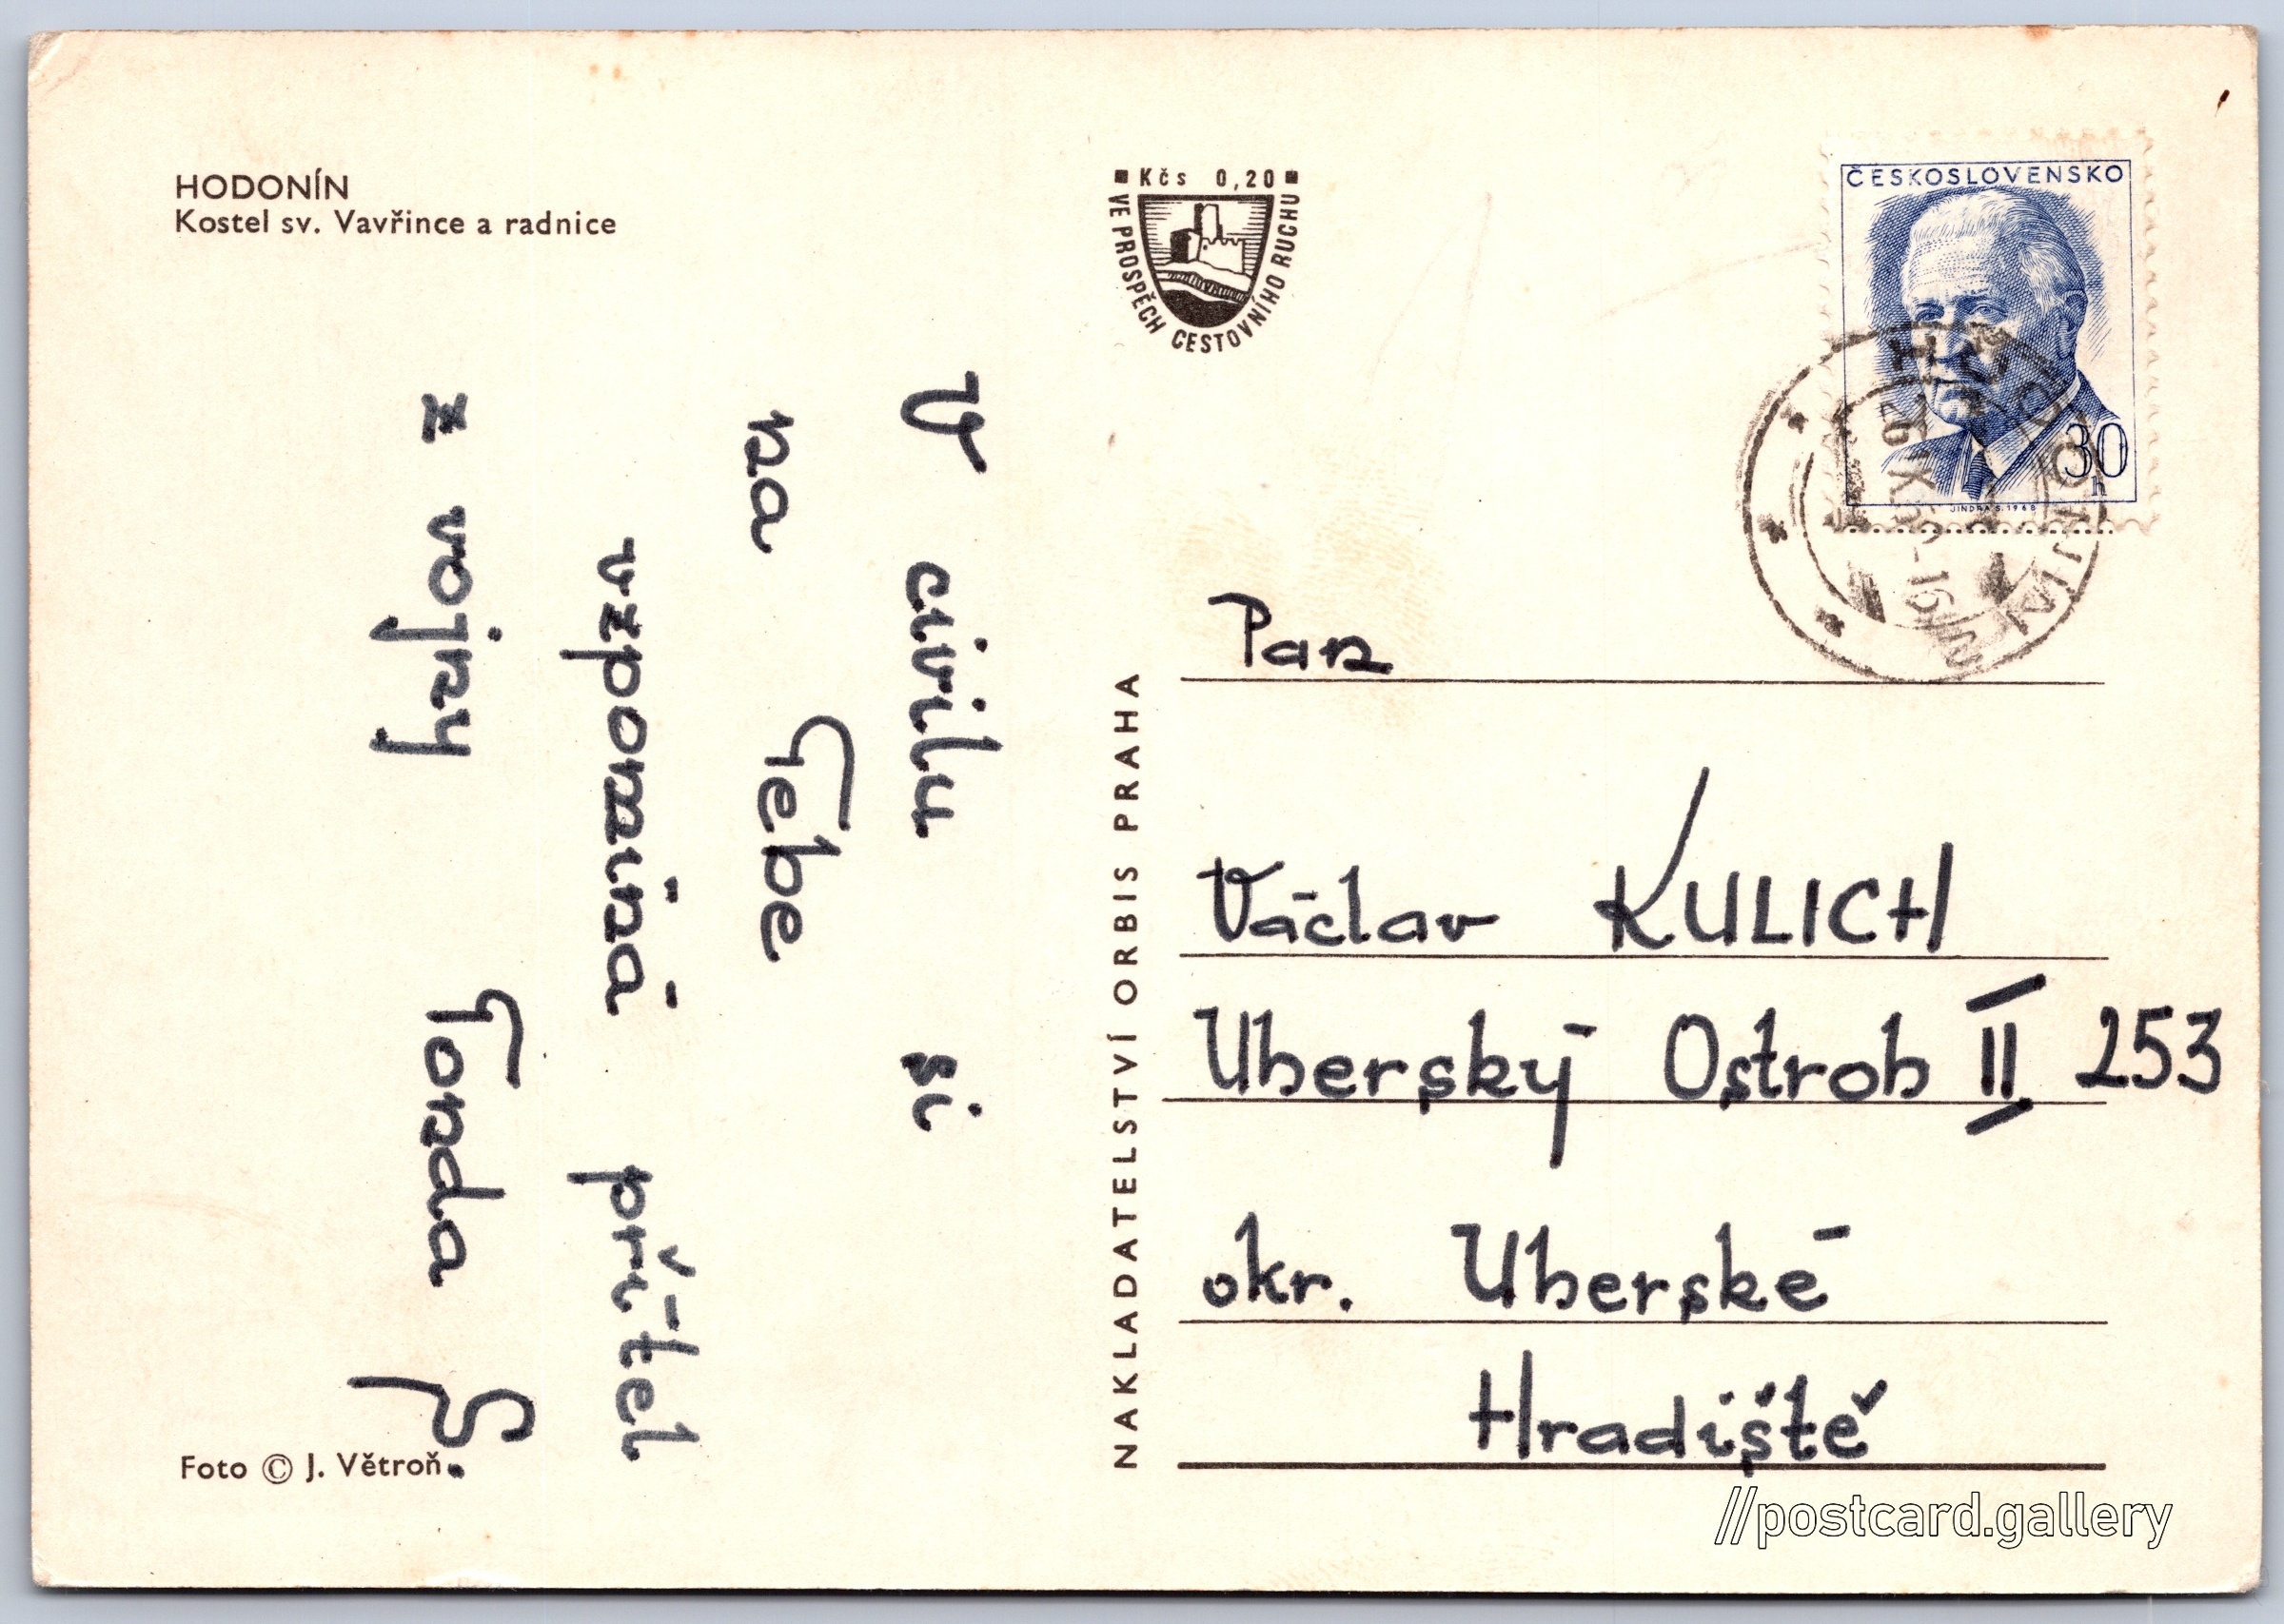 HODONÍN
Kostel sv. Vavřince a radnice
V civilu si
na Tebe
vzpomíná přítel
z vojny Tonda Š.
Foto © J. Větroň
Kčs 0,20
VE PROSPĚCH CESTOVNÍHO RUCHU
NAKLADATELSTVÍ ORBIS PRAHA
ČESKOSLOVENSKO
30
h
JINDRA S. 1968
HODONÍN
Pan
Václav KULICH
Uherský Ostroh II 253
okr. Uherské
Hradiště
//postcard.gallery